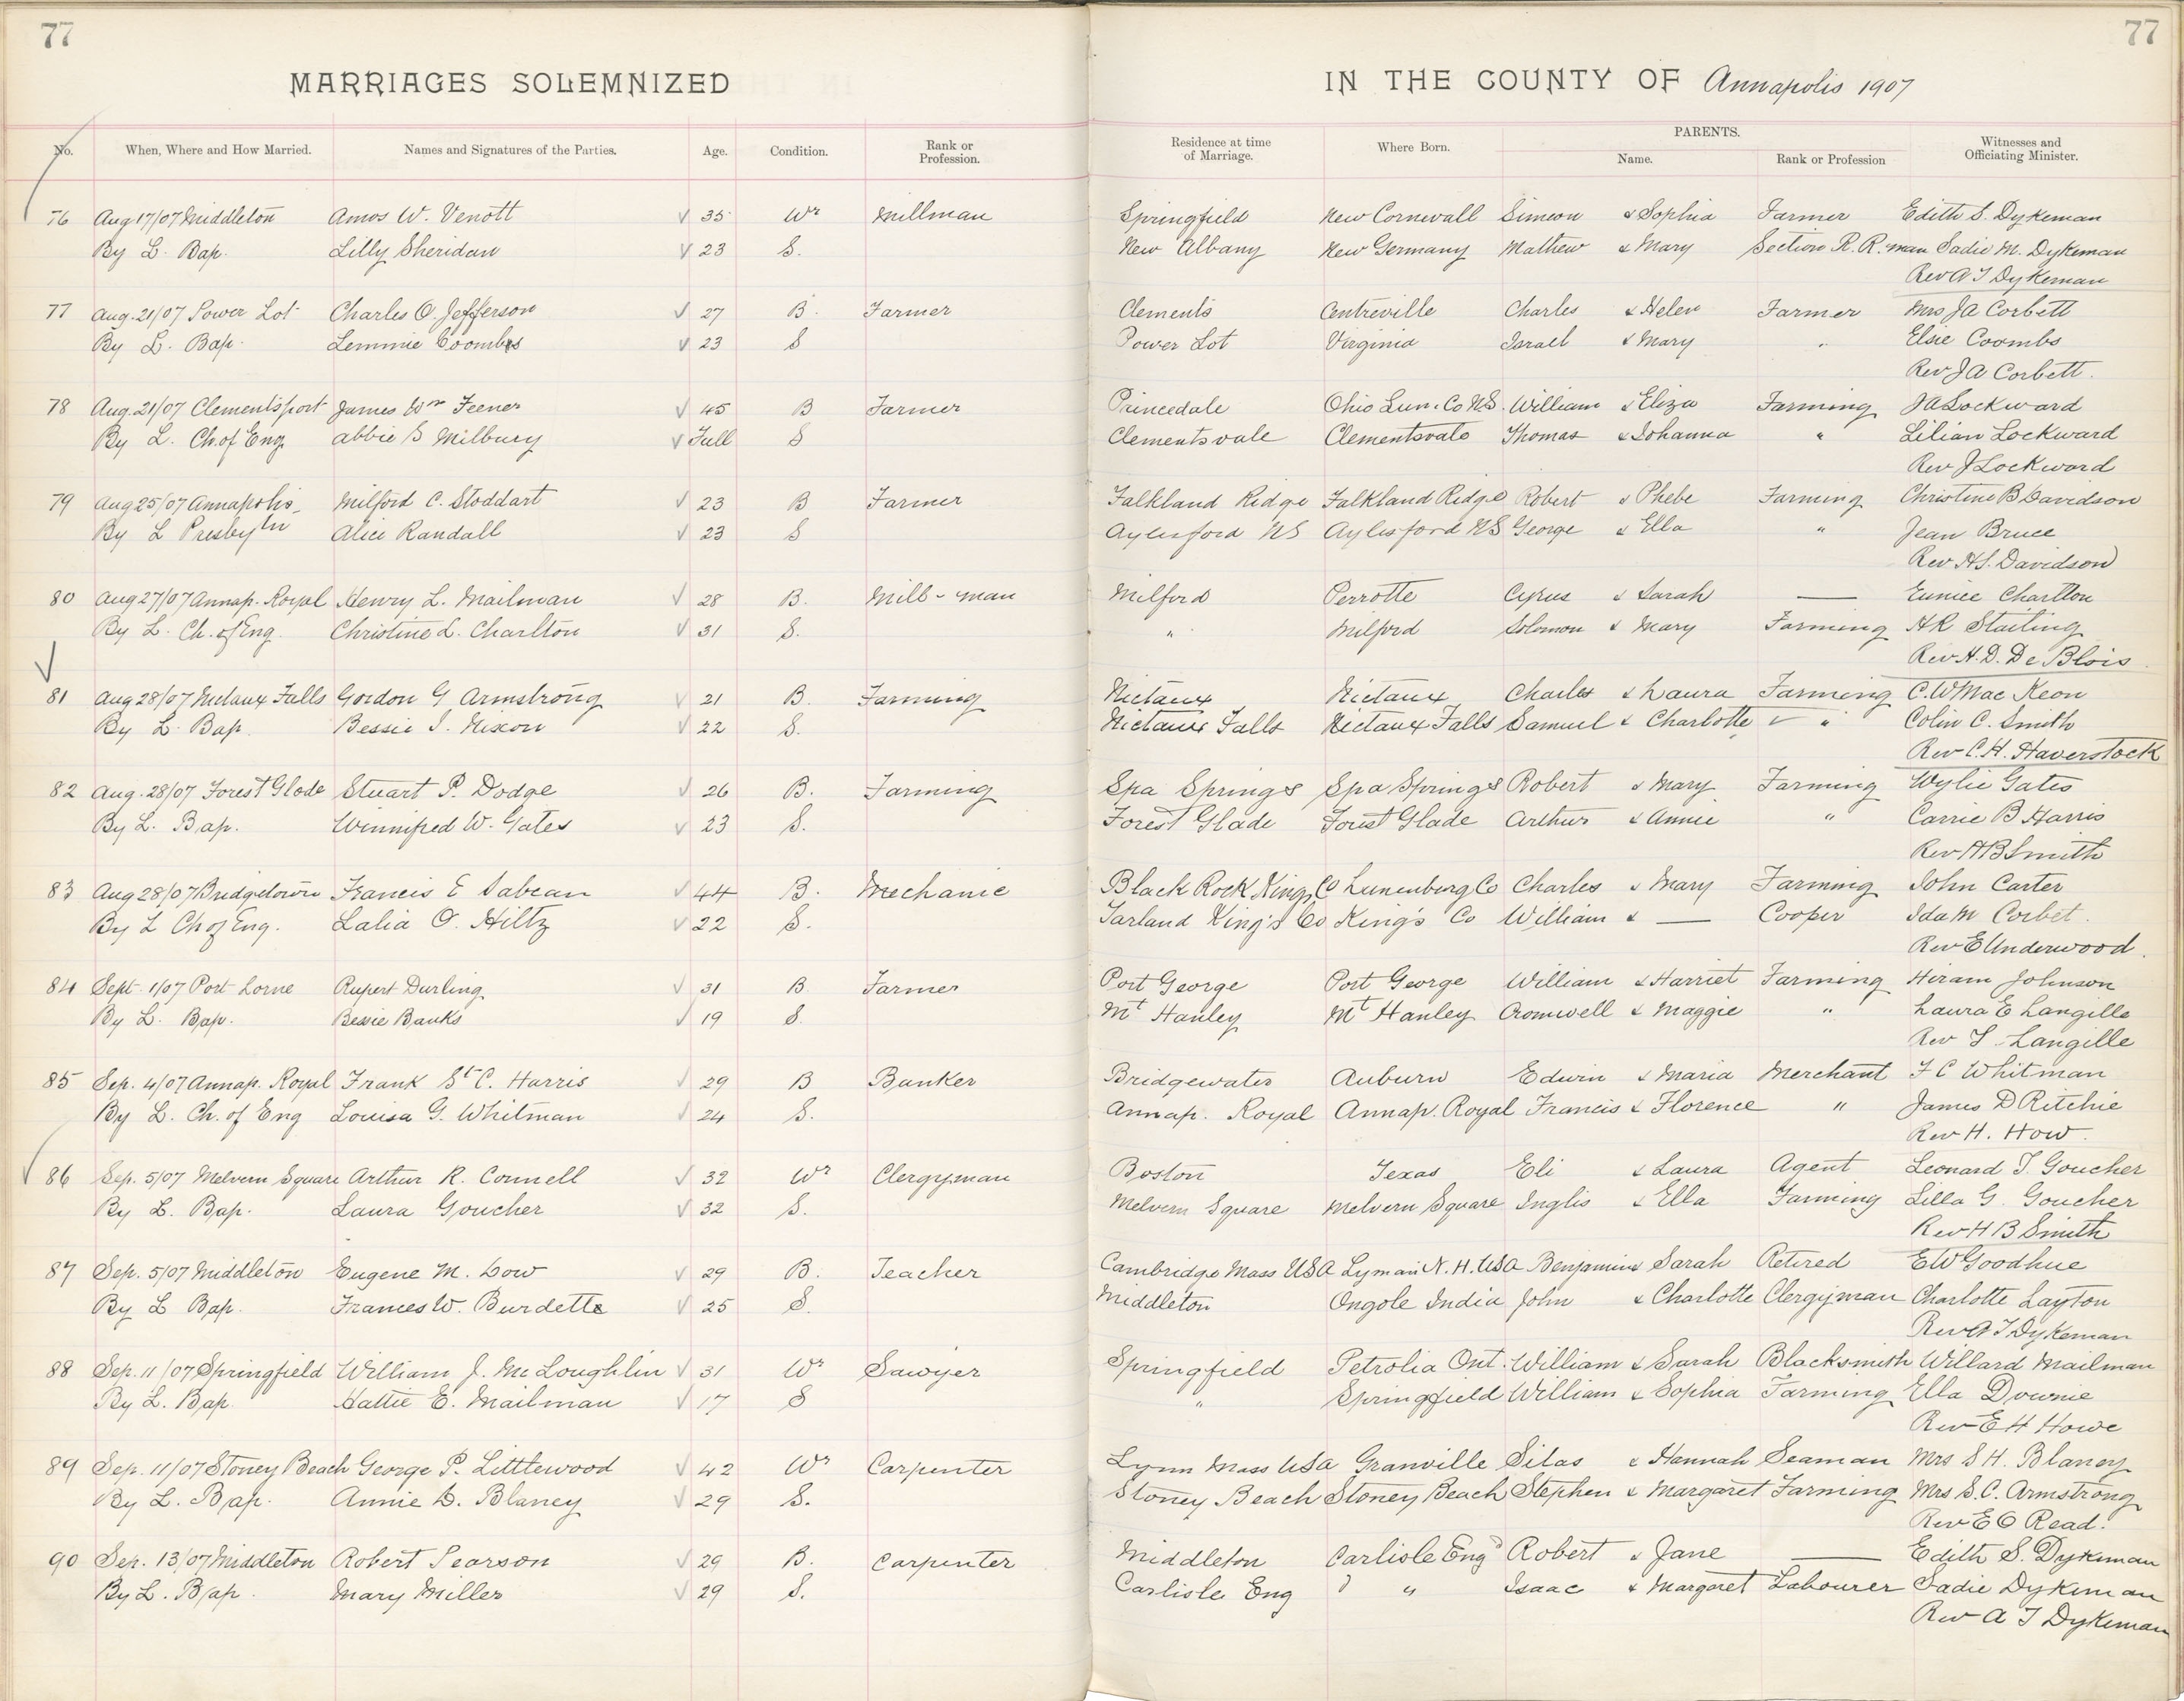 77 77
MARRIAGES SOLEMNIZED IN THE COUNTY OF Annapolis 1907
No. When, Where and How Married. Names and Signatures of the Parties. Age. Condition. Rank or Profession. Residence at time of Marriage. Where Born. PARENTS. Name. Rank or Profession Witnesses and Officiating Minister.
76 Aug 17/07 Middleton Amos W. Venott 35 Wr Millman Springfield New Cornwall Simeon & Sophia Farmer Edith S. Dykeman
By L. Bap. Lilly Sheridan 23 S. New Albany New Germany Mathew & Mary Section R.R. man Sadie M. Dykeman
Rev A T Dykeman
77 Aug. 21/07 Power Lot Charles O. Jefferson 27 B. Farmer Clements Centreville Charles & Helen Farmer Mrs J A Corbett
By L. Bap. Lemmie Coombs 23 S Power Lot Virginia Israel & Mary " Elsie Coombs
Rev J A Corbett.
78 Aug. 21/07 Clementsport James Wm Feener 45 B Farmer Princedale Ohio Lun. Co N.S. William & Eliza Farming J A Lockward
By L. Ch. of Eng Abbie S Milbury Full S Clementsvale Clementsvale Thomas & Johanna " Lilian Lockward
Rev J Lockward
79 Aug 25/07 Annapolis Milford C. Stoddart 23 B Farmer Falkland Ridge Falkland Ridge Robert & Phebe Farming Christine B Davidson
By L Presbytn Alice Randall 23 S Aylesford NS Aylesford NS George & Ella " Jean Bruce
Rev H.S. Davidson
80 Aug 27/07 Annap. Royal Henry L. Mailman 28 B. Mill-man Milford Perrotte Cyrus & Sarah — Eunice Charlton
By L. Ch. of Eng. Christine L. Charlton 31 S. " Milford Solomon & Mary Farming H R Stailing
Rev H. D. De Blois.
81 Aug 28/07 Nictaux Falls Gordon G Armstrong 21 B. Farming Nictaux Nictaux Charles & Laura Farming C. W Mac Keon
By L. Bap. Bessie I. Nixon 22 S. Nictaux Falls Nictaux Falls Samuel & Charlotte " Colin C. Smith
Rev C. H. Haverstock
82 Aug. 28/07 Forest Glade Stuart P. Dodge 26 B. Farming Spa Springs Spa Springs Robert & Mary Farming Wylie Gates
By L. Bap. Winnifred W. Gates 23 S. Forest Glade Forest Glade Arthur & Annie " Carrie B Harris
Rev H B Smith
83 Aug 28/07 Bridgetown Francis E Sabean 44 B. Mechanic Black Rock Kings Co Lunenburg Co Charles & Mary Farming John Carter
By L Ch of Eng. Lalia O. Hiltz 22 S. Tarland King's Co King's Co William & — Cooper Ida M Corbet.
Rev E Underwood.
84 Sept. 1/07 Port Lorne Rupert Durling 31 B. Farmer Port George Port George William & Harriet Farming Hiram Johnson
By L. Bap. Bessie Banks 19 S. Mt Hanley Mt Hanley Cromwell & Maggie " Laura E Langille
Rev T Langille
85 Sep. 4/07 Annap. Royal Frank St C. Harris 29 B Banker Bridgewater Auburn Edwin & Maria Merchant F C Whitman
By L. Ch. of Eng Louisa G. Whitman 24 S. Annap. Royal Annap. Royal Francis & Florence " James D Ritchie
Rev H. How.
86 Sep. 5/07 Melvern Square Arthur R. Connell 32 Wr Clergyman Boston Texas Eli & Laura Agent Leonard T. Goucher
By L. Bap. Laura Goucher 32 S. Melvern Square Melvern Square Inglis & Ella Farming Lilla G. Goucher
Rev H B Smith
87 Sep. 5/07 Middleton Eugene M. Dow 29 B. Teacher Cambridge Mass USA Lyman N.H. USA Benjamin & Sarah Retired E W Goodhue
By L Bap. Frances W. Burdette 25 S. Middleton Ongole India John & Charlotte Clergyman Charlotte Layton
Rev A T Dykeman
88 Sep. 11/07 Springfield William J. McLoughlin 31 Wr Sawyer Springfield Petrolia Ont. William & Sarah Blacksmith Willard Mailman
By L. Bap. Hattie E. Mailman 17 S " Springfield William & Sophia Farming Ella Downie
Rev E H Howe
89 Sep. 11/07 Stoney Beach George P. Littlewood 42 Wr Carpenter Lynn Mass USA Granville Silas & Hannah Seaman Mrs S H. Blaney
By L. Bap. Annie D. Blaney 29 S. Stoney Beach Stoney Beach Stephen & Margaret Farming Mrs S. C. Armstrong
Rev E O Read.
90 Sep. 13/07 Middleton Robert Pearson 29 B. Carpenter Middleton Carlisle Engd Robert & Jane — Edith S. Dykeman
By L. Bap. Mary Miller 29 S. Carlisle Eng " Isaac & Margaret Labourer Sadie Dykeman
Rev A T Dykeman